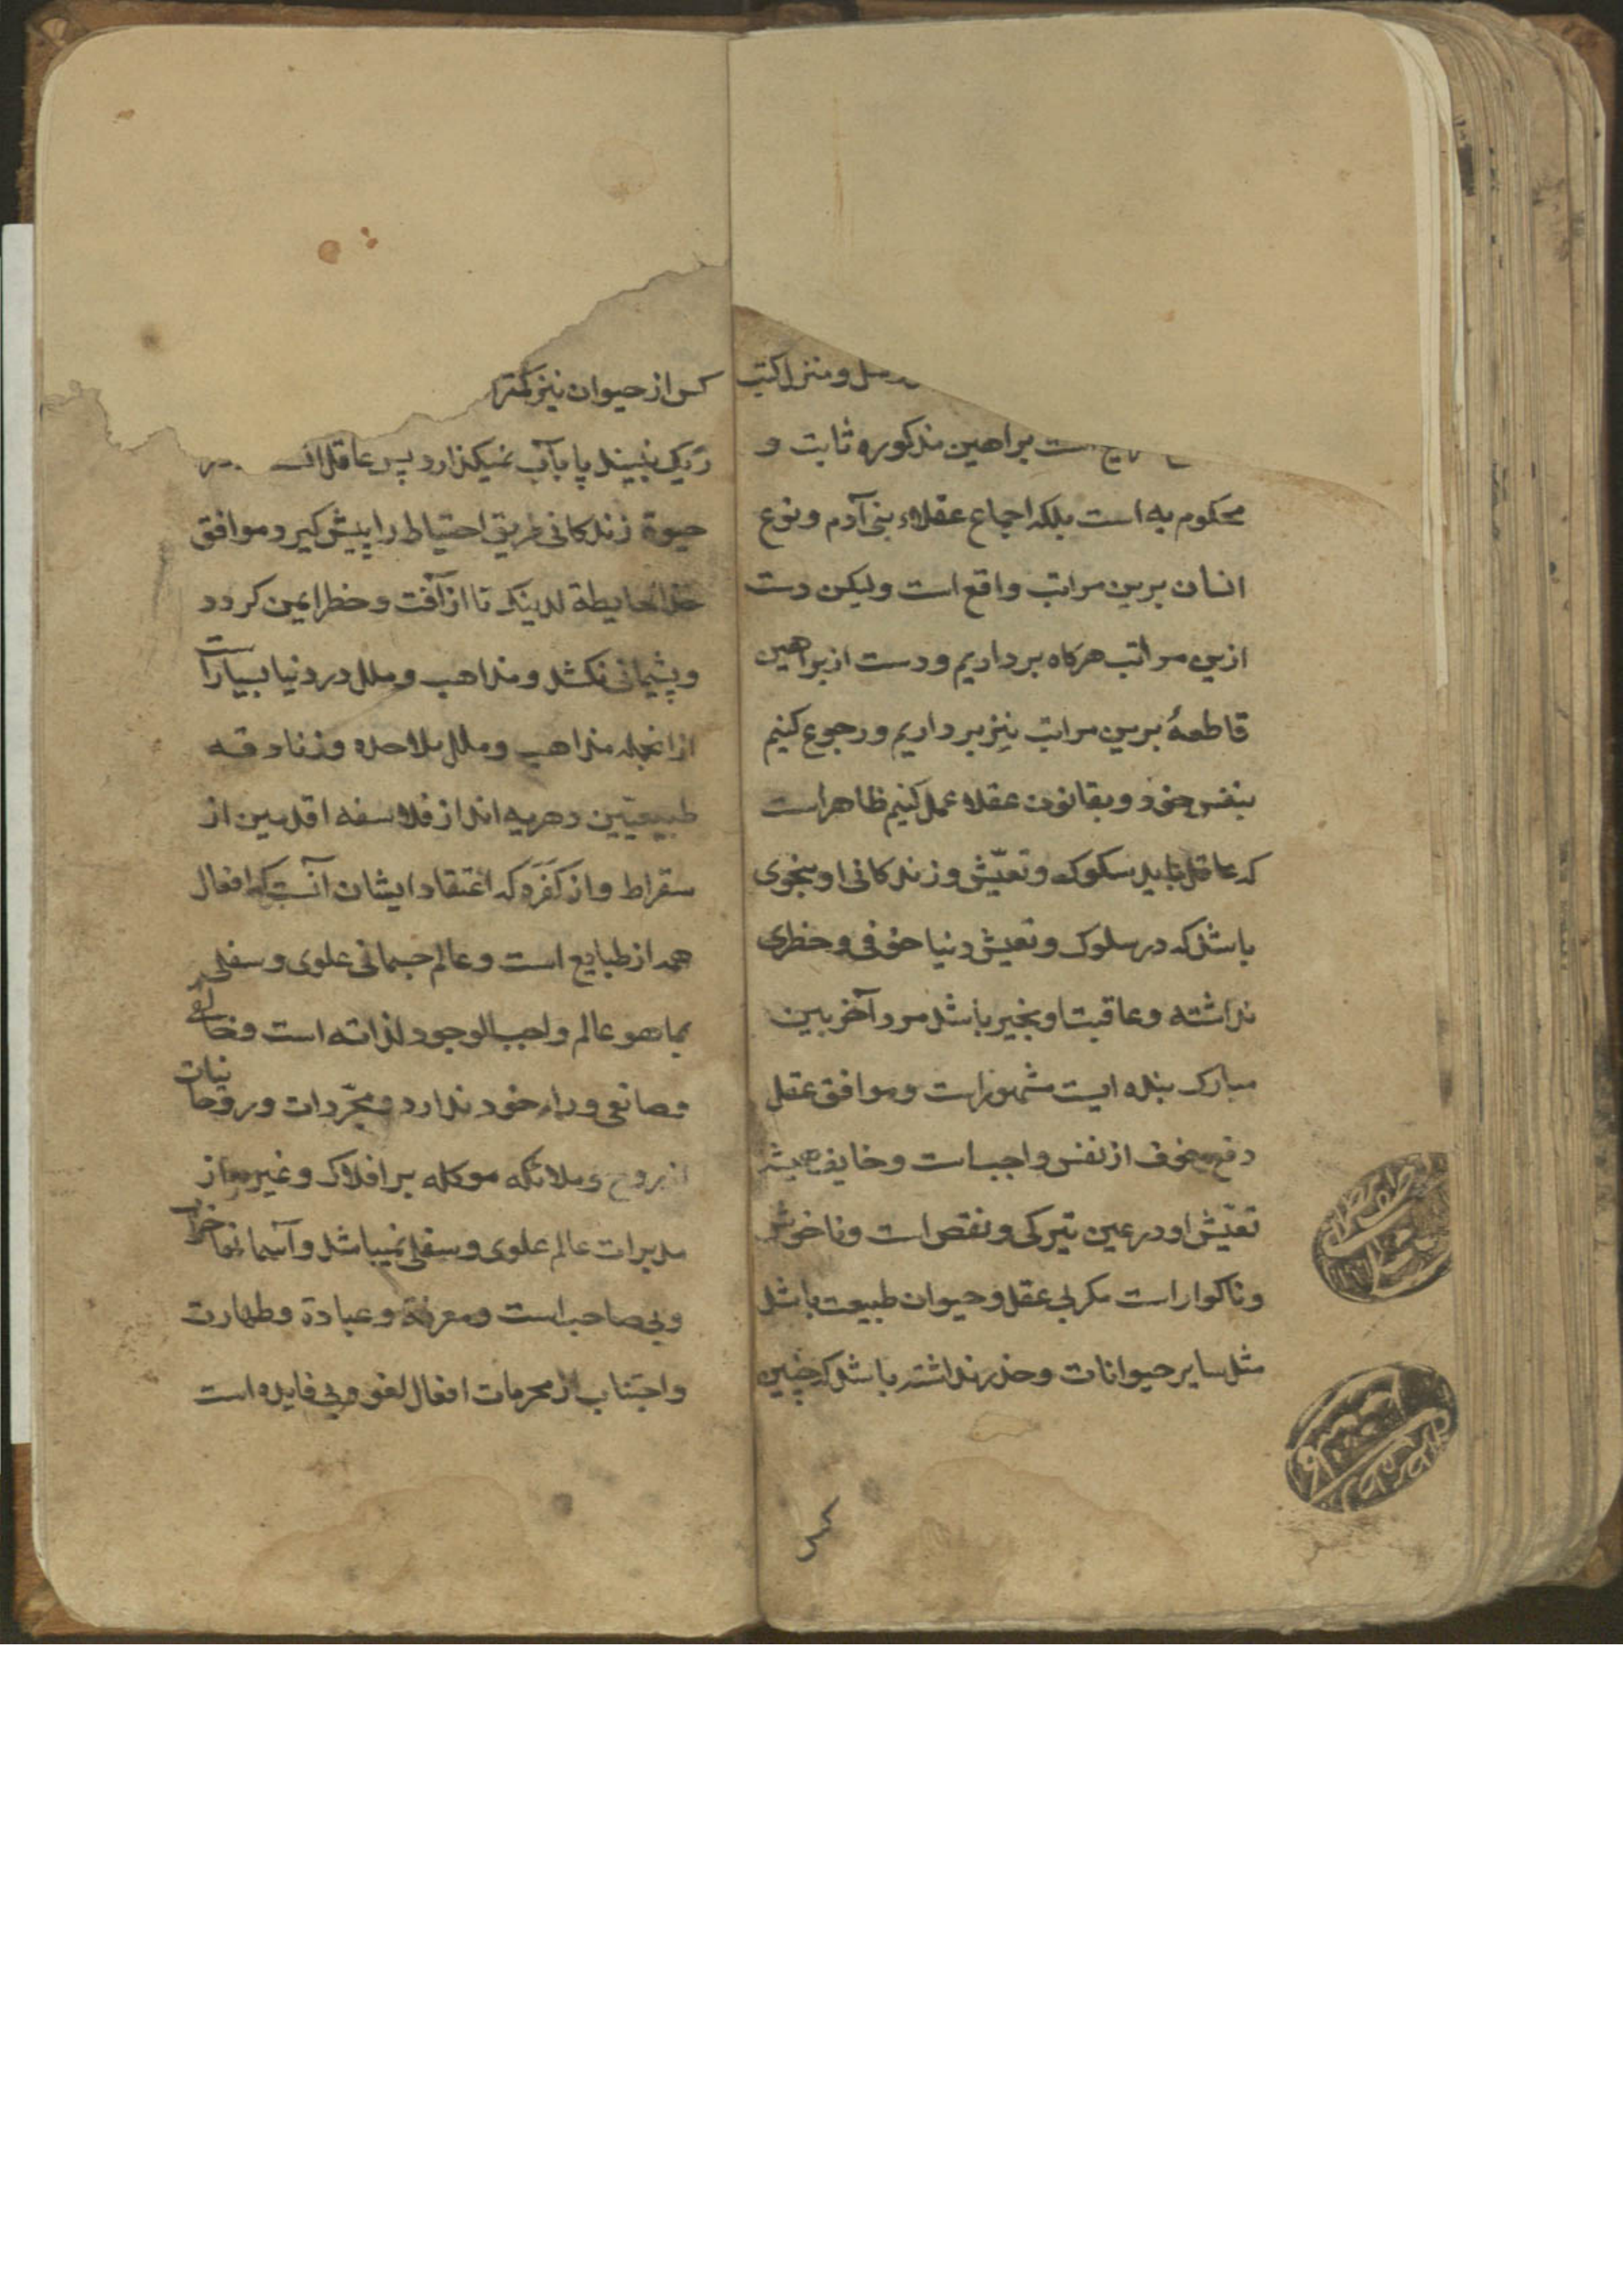 رسل و منزل کتب
است براهین مذکوره ثابت و
محکوم به است بلکه اجماع عقلاء بنی آدم و نوع
انسان برین مراتب واقع است ولیکن دست
ازین مراتب هرکاه برداریم و دست از براهین
قاطعهٔ برین مراتب نیز برداریم و رجوع کنیم
بنفس خود و بقانون عقلاء عمل کنیم ظاهر است
که عاقل باید سکوک و تعیّش و زندکانی او بنحوی
باشد که در سلوک و تعیش دنیا خوفی و خطری
نداشته و عاقبت او بخیر باشد مرد آخر بین
مبارک بنده ایست مشهور است و موافق عقل
دفع خوف از نفس واجب است و خایف همیشه
تعیّش او در عین تیرکی و نقص است و ناخوش
و ناکوار است مکر بی عقل و حیوان طبیعت باشد
مثل سایر حیوانات و حذر نداشته باشد که چنین
کس از حیوان نیز کمتر
ریک نبیند پا بآب نمیکذارد پس عاقل
حیوة زندکانی طریق احتیاط را پیش کیرد و موافق
خذ الحایطة لدینک تا از آفت و خطر ایمن کردد
و پشیمانی نکشد و مذاهب و ملل در دنیا بسیار است
از انجمله مذاهب و ملل ملاحده و زنادقه
طبیعیّین دهریه اند از فلاسفه اقدمین از
سقراط و از کفره که اعتقاد ایشان آنست که افعال
همه از طبایع است و عالم جسمانی علوی و سفلی
بما هو عالم واجب الوجود لذاته است و خالقی
و صانعی وراء خود ندارد و مجرّدات و روحانیات
از روح و ملائکه موکله بر افلاک و غیرها از
مدبرات عالم علوی و سفلی نمیباشد و آسمانها خراب
و بی صاحب است و معرفة و عبادة و طهارت
و اجتناب از محرمات افعال لغو و بی فایده است